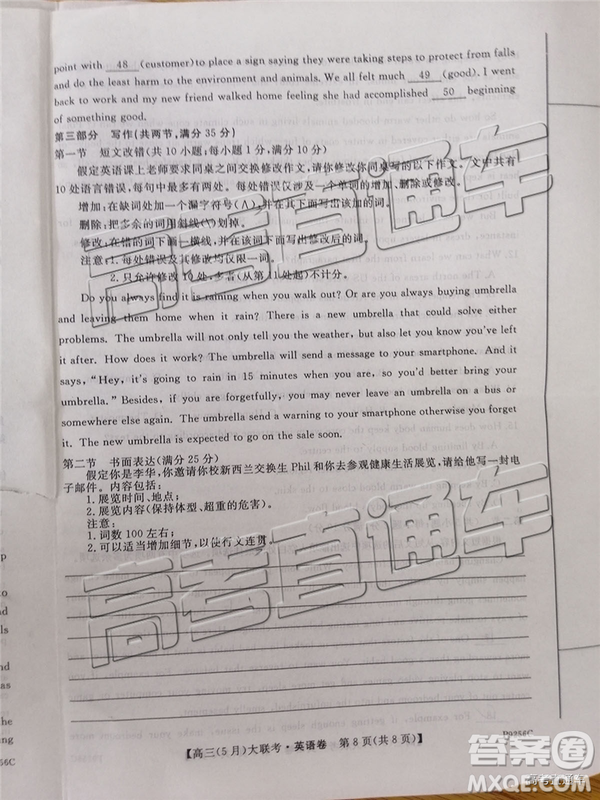 point with 48 (customer)to place a sign saying they were taking steps to protect from falls
and do the least harm to the environment and animals. We all felt much 49 (good). I went
back to work and my new friend walked home feeling she had accomplished 50 beginning
of something good.
第三部分 写作(共两节,满分 35 分)
第一节 短文改错(共 10 小题;每小题 1 分,满分 10 分)
假定英语课上老师要求同桌之间交换修改作文,请你修改你同桌写的以下作文。文中共有
10 处语言错误,每句中最多有两处。每处错误仅涉及一个单词的增加、删除或修改。
增加:在缺词处加一个漏字符号(∧),并在其下面写出该加的词。
删除:把多余的词用斜线(\)划掉。
修改:在错的词下画一横线,并在该词下面写出修改后的词。
注意:1.每处错误及其修改均仅限一词。
2.只允许修改 10 处,多者(从第 11 处起)不计分。
Do you always find it is raining when you walk out? Or are you always buying umbrella
and leaving them home when it rain? There is a new umbrella that could solve either
problems. The umbrella will not only tell you the weather, but also let you know that you left
it after. How does it work? The umbrella will send a message to your smartphone. And it
says, "Hey, it's going to rain in 15 minutes when you are, so you'd better bring your
umbrella." Besides, if you are forgetfully, you may even leave an umbrella on a bus or
somewhere else. The umbrella send a warning to your smartphone otherwise you move
away. The new umbrella is expected to go on the sale soon.
第二节 书面表达(满分 25 分)
假定你是李华,你邀请你校新西兰交换生 Phil 和你去参观健康生活展览,请给他写一封电
子邮件。内容包括:
1.展览时间、地点;
2.展览内容(保持体型、超重的危害)。
注意:
1.词数 100 左右;
2.可以适当增加细节,以使行文连贯。
【高三(5 月)大联考·英语卷 第 8 页(共 8 页)】
D9256C
56C
高考直通车
高考直通车
答案圈